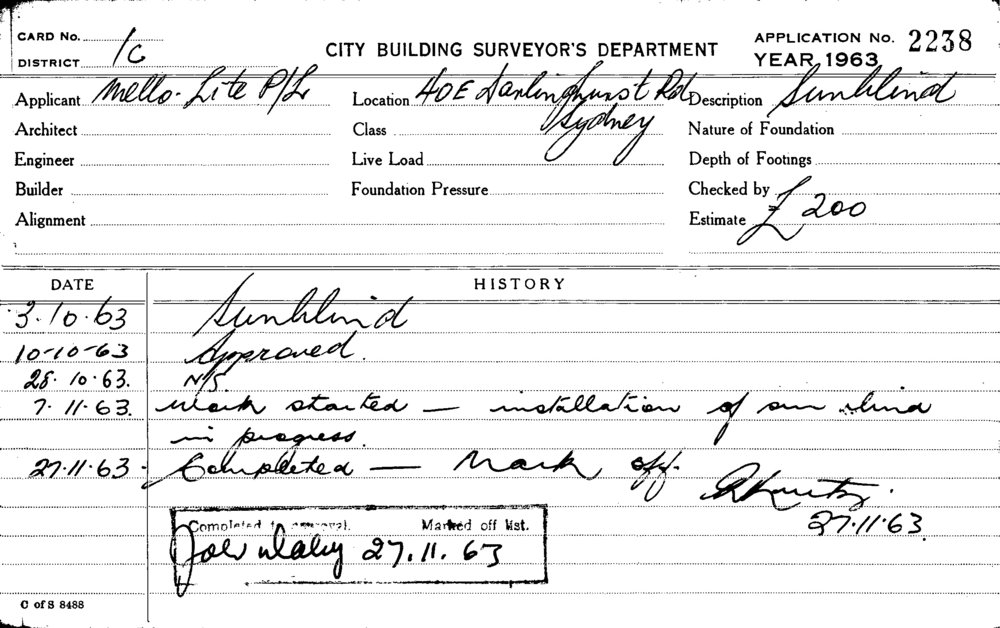 CARD No. 1C
DISTRICT
CITY BUILDING SURVEYOR'S DEPARTMENT
APPLICATION No. 2238
YEAR 1963
Applicant Mello-Lite P/L Location 40E Darlinghurst Rd Description Sunblind
Sydney
Architect Class Nature of Foundation
Engineer Live Load Depth of Footings
Builder Foundation Pressure Checked by
Alignment Estimate £200
DATE HISTORY
3.10.63 Sunblind
10-10-63 Approved.
28.10.63. N/S.
7.11.63. Work started — installation of sun blind
in progress.
27.11.63. Completed — Mark off.
27.11.63.
Completed to approval. Marked off list.
27.11.63
C of S 8488